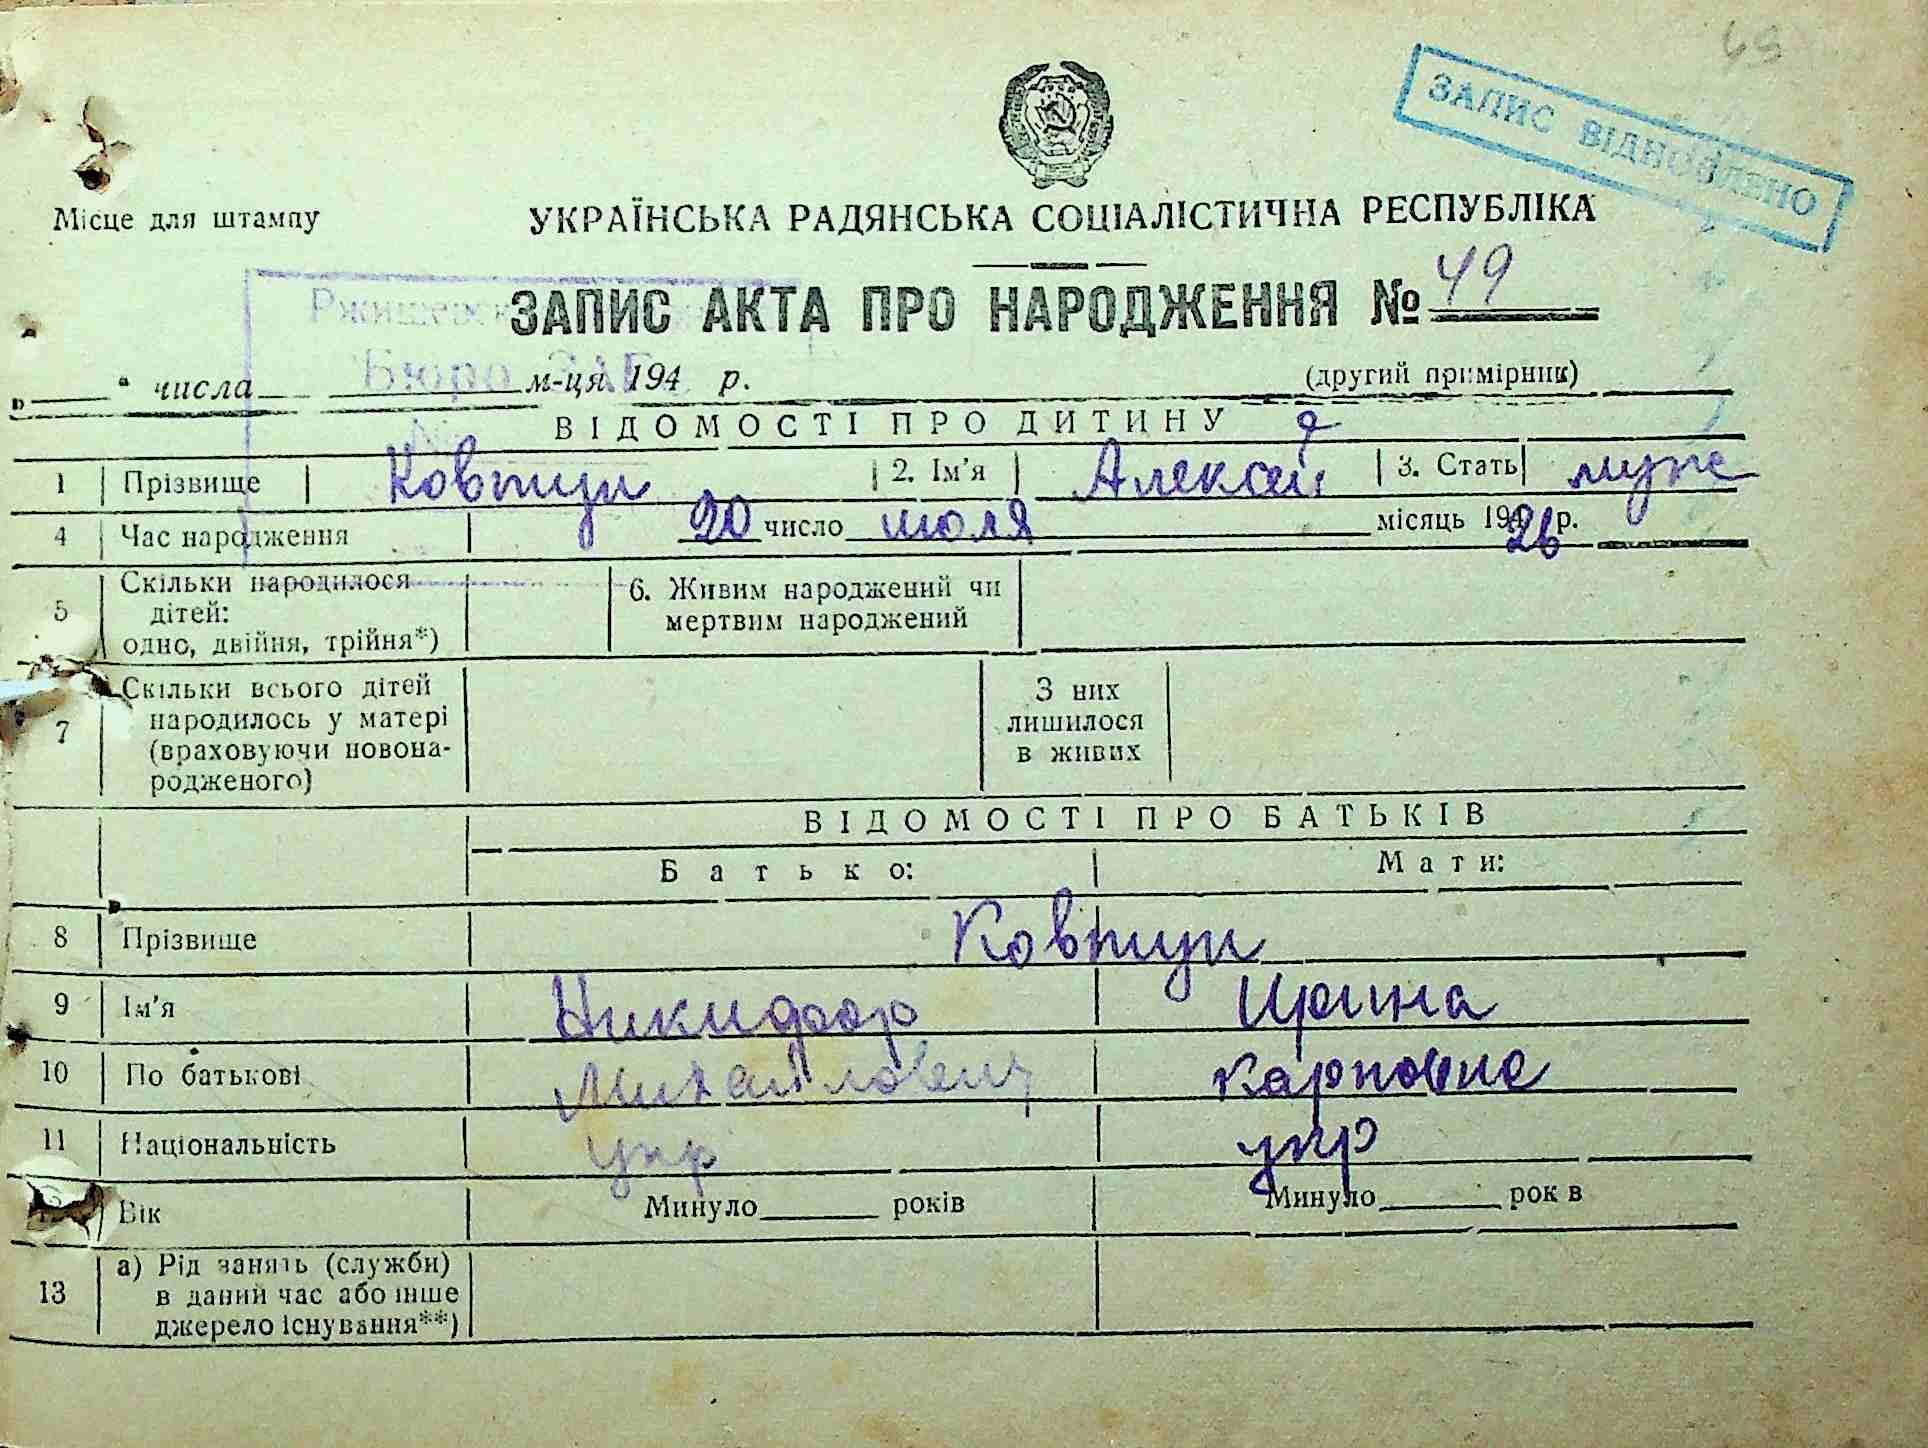 65
ЗАПИС ВІДНОВЛЕНО
Місце для штампу
УКРАЇНСЬКА РАДЯНСЬКА СОЦІАЛІСТИЧНА РЕСПУБЛІКА
ЗАПИС АКТА ПРО НАРОДЖЕННЯ № 49
Бюро ЗАГ
„ “ числа м-ця 194 р. (другий примірник)
ВІДОМОСТІ ПРО ДИТИНУ
1 Прізвище Ковтун 2. Ім’я Алексей 3. Стать муж
4 Час народження 20 число июля місяць 1926 р.
5 Скільки народилося дітей: одно, двійня, трійня*) 6. Живим народжений чи мертвим народжений
7 Скільки всього дітей народилось у матері (враховуючи новонародженого) З них лишилося в живих
ВІДОМОСТІ ПРО БАТЬКІВ
Батько: Мати:
8 Прізвище Ковтун
9 Ім’я Никифор Ирина
10 По батькові Михайлович Карповна
11 Національність укр укр
Вік Минуло років Минуло рок в
13 а) Рід занять (служби) в даний час або інше джерело існування**)